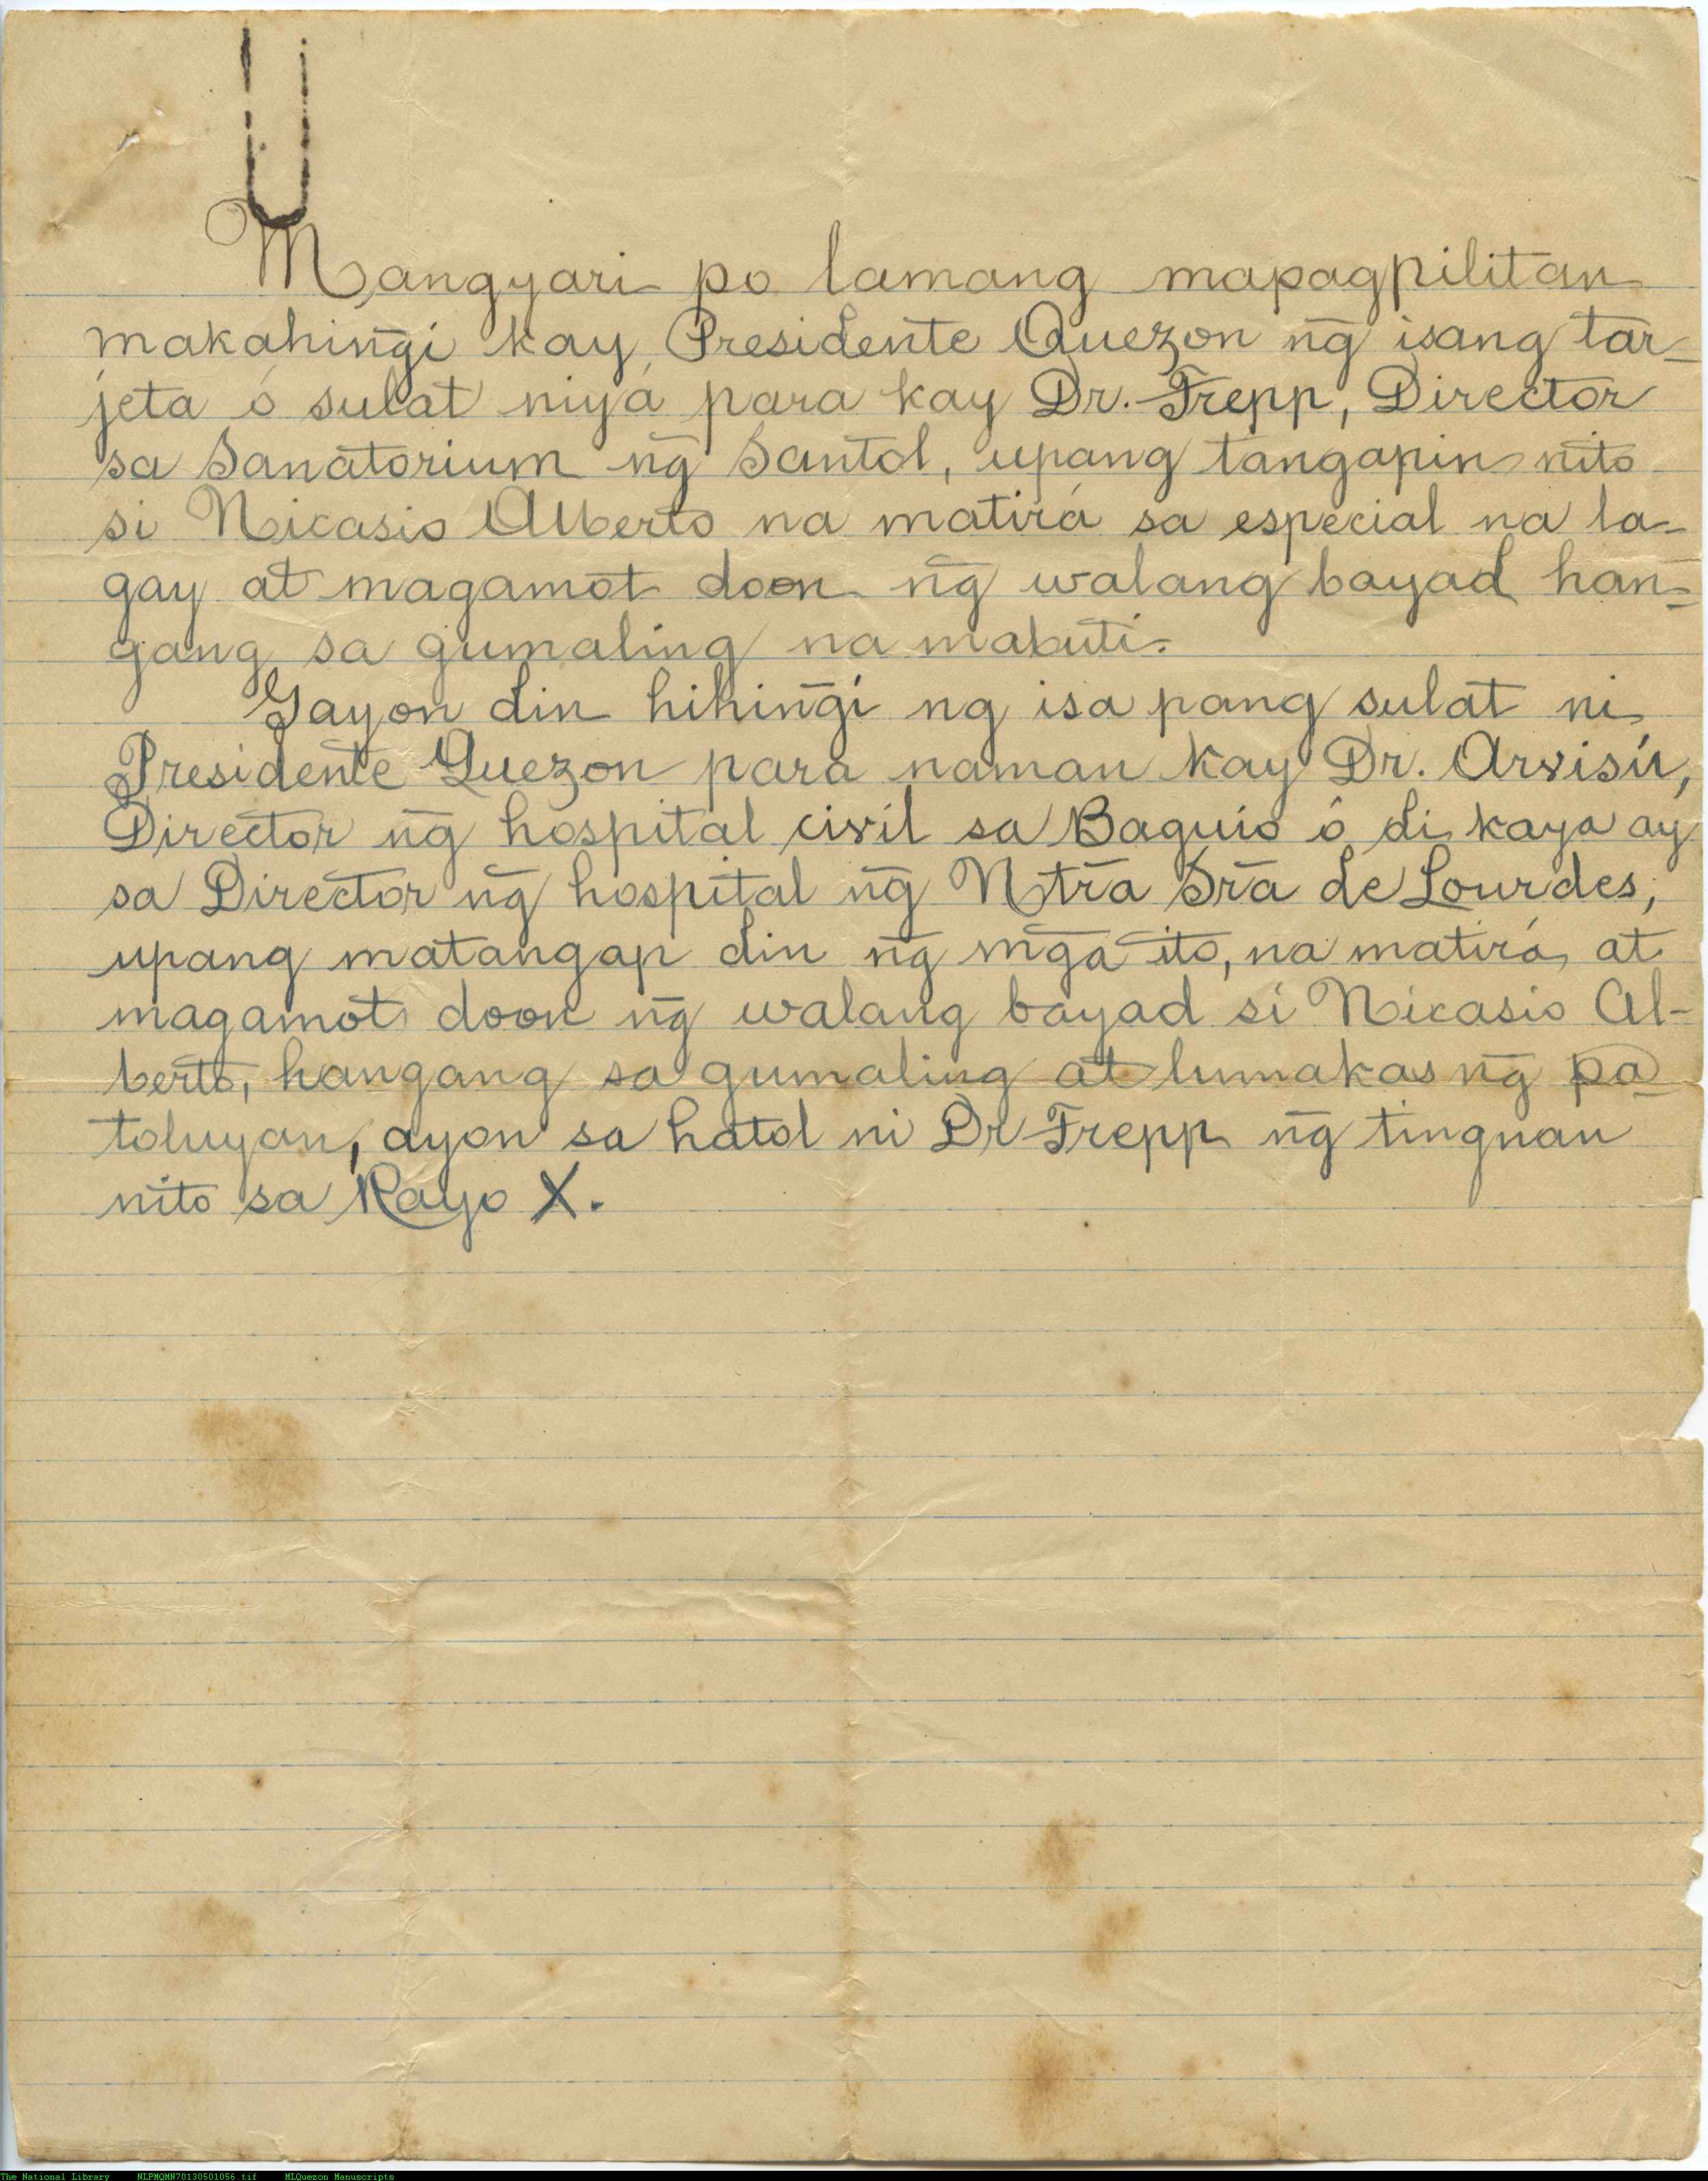 Mangyari po lamang mapagpilitan
makahin̄gi kay Presidente Quezon n̄g isang tar=
jeta ó sulat niyá para kay Dr. Trepp, Director
sa Sanatorium n̄g Santol, upang tangapin nito
si Nicasio Alberto na matirá sa especial na la-
gay at magamot doon n̄g walang bayad han=
gang sa gumaling na mabuti.
Gayon din hihin̄gi ng isa pang sulat ni
Presidente Quezon para naman kay Dr. Arvisú,
Director n̄g hospital civil sa Baguio ó di kaya ay
sa Director n̄g hospital n̄g Ntra Sra de Lourdes,
upang matangap din n̄g mg̃a ito, na matirá at
magamot doon n̄g walang bayad si Nicasio Al-
berto, hangang sa gumaling at lumakas n̄g pa
toluyan, ayon sa hatol ni Dr Trepp n̄g tingnan
nito sa Rayo X.
The National Library NLPMQMN70130501056.tif MLQuezon Manuscripts